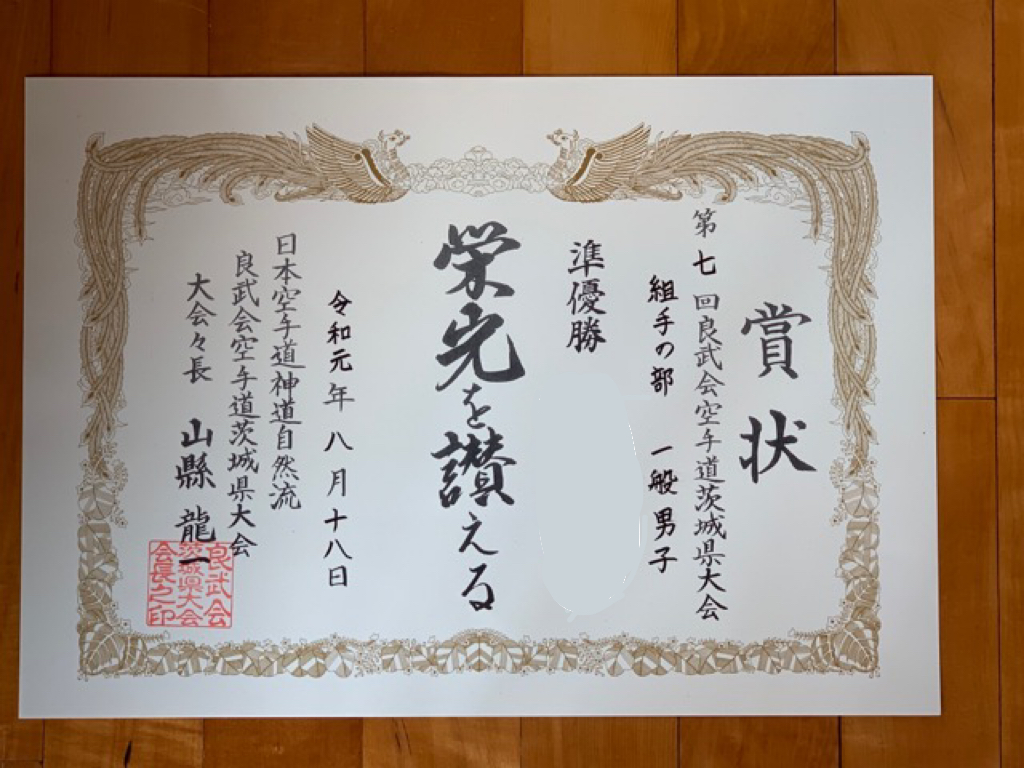 賞状
第七回良武会空手道茨城県大会
組手の部 一般男子
準優勝
栄光を讃える
令和元年八月十八日
日本空手道神道自然流
良武会空手道茨城県大会
大会々長 山縣龍一
良武会
茨城県大会
会長之印